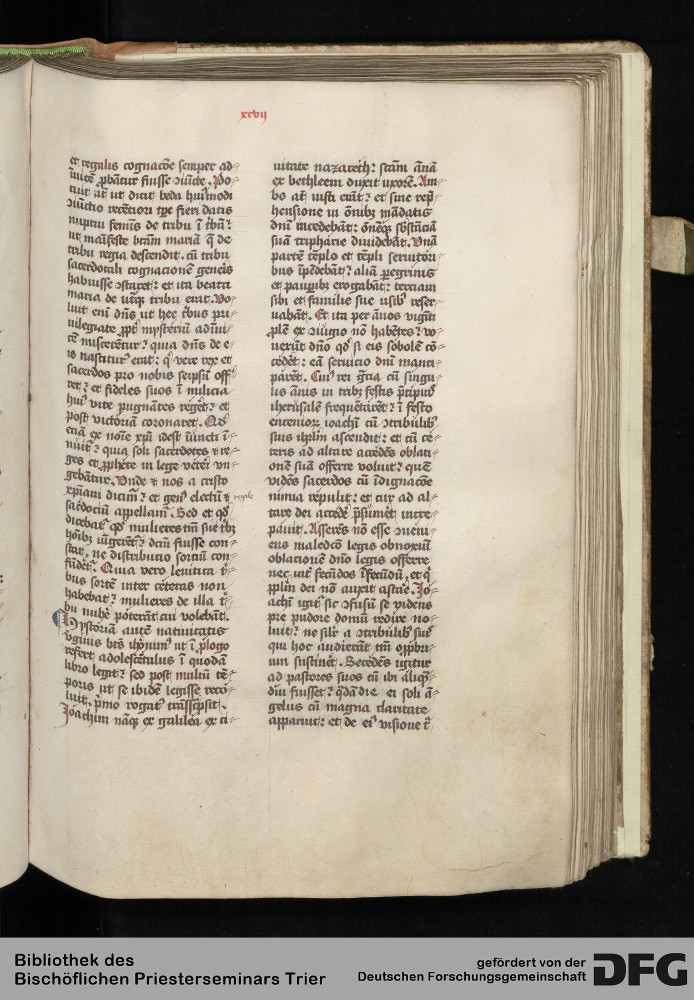 xcvii
et regalis cognacõe semper ad⸗
īuicẽ ꝓbãtur fuisse ꝯiũcte. Po⸗
tuit aũt ut dicit beda huiꝰmodi
ꝯiũctio recẽtiori tꝑe fieri datis
nuptui femĩs de tribu ĩ tbũ:
ut maĩfeste btãm mariã q̃ de
tribu regia descendit. cũ tribu
sacerdotali cognacionẽ gener̃
habuisse ꝯstaret: et ita beata
maria de utq̃ʒ tribu erat. Vo⸗
luit eni dñs ut hee tbus pri⸗
uilegiate ꝓpt̃ mysteriũ adĩui⸗
cẽ miscerẽtur: quia dñs de e⸗
is nasciturꝰ erat: q̃ vere rex et
sacerdos pro nobis seipsũ off̃⸗
ret: et fideles suos ĩ milicia
huiꝰ vite pugnãtes regẽt: et
post victoriã coronaret. Qđ
eciã ex noĩe xp̃i idest ũincti ĩ⸗
nuit̃: quia soli sacerdotes ⁊ re⸗
ges et ꝓphete in lege vet̃ei vn⸗
gebãtur. Vnde ⁊ nos a cristo
xp̃iani dicim̃: et genꝰ electũ ⁊ regale
sac̃dociũ appellam̃. Sed et qđ
dicebat̃ qđ mulieres tm̃ sue tbꝫ
hoĩbꝫ iũgerẽt̃: dcm̃ fuisse con⸗
stat, ne distributio sortiũ con⸗
fũdet̃. Quia vero leuitica t̃⸗
bus sortẽ inter ceteras non
habebat: mulieres de illa t̃⸗
bu nubẽ poterãt cui volebãt.
Hystoriã autẽ natiuitatis
v̈ginis bt̃s iheronimꝰ ut ĩ ꝓlogo
refert adolescẽtulus ĩ quodã
libro legit: sed post multũ tẽ⸗
poris ut se ibidẽ legisse reco⸗
luit. p̃mo rogatꝰ trãsscpsit.
Joachim nãq̃ʒ ex galilea ex ci⸗
uitate nazareth: scãm ãnã
ex bethleem duxit uxorẽ. Am⸗
bo aũt iusti erãt: et sine rep̃⸗
hensione in õnibꝫ mãdatis
dnĩ ĩncedebãt: õnẽq̃ʒ sb̃stãciã
suã tripharie diuidebãt. Vnã
partẽ tẽplo et tẽpli seruitori⸗
bus ĩpẽdebãt: aliã ꝑegrinis
et pauꝑibꝫ erogabãt: terciam
sibi et familie sue usibꝰ reser⸗
uabãt. Et ita per ãnos viginti
ꝓlẽ ex ꝯiugio nõ habẽtes: vo⸗
uerũt dño qđ si eis sobolẽ cõ⸗
cedẽt: eã seruicio dnĩ manci⸗
parẽt. Cuiꝰ rei gr̃cia cũ singu⸗
lis ãnis in tribꝫ festis p̃cipuis
iherusalẽ frequẽtarẽt: ĩ festo
enceniorꝫ ioachĩ cũ ꝯtribulibꝰ
suis ihrl̃m ascendit: et cũ ce⸗
teris ad altare accedẽs oblaci⸗
onẽ suã offerre voluit: quẽ
vidẽs sacerdos cũ ĩdignacõe
nimia repulit: et cur ad al⸗
tare dei accedẽ p̃sumẽt incre⸗
pauit. Asserẽs nõ esse ꝯueni⸗
ens maledcõ legis obnoxiũ
oblacionẽ dño legis offerre
nec int̃ fecũdos ĩfecũdũ, et q̃
pp̃lm dei nõ auxit astar̃. Jo⸗
achĩ igit̃ sic ꝯfusũ se videns
pre pudore domũ redire no⸗
luit: ne silr̃ a ꝯtribulibꝰ suis
qui hoc audierãt tm̃ opprobri⸗
um sustinẽt. Secedẽs igitur
ad pastores suos cũ ibi aliq̃ʒ⸗
diu fuisset: q̃dã die ei soli ã⸗
gelus cũ magna claritate
apparuit: et de eiꝰ visione t̃⸗
Bibliothek des
Bischöflichen Priesterseminars Trier
gefördert von der
Deutschen Forschungsgemeinschaft
DFG